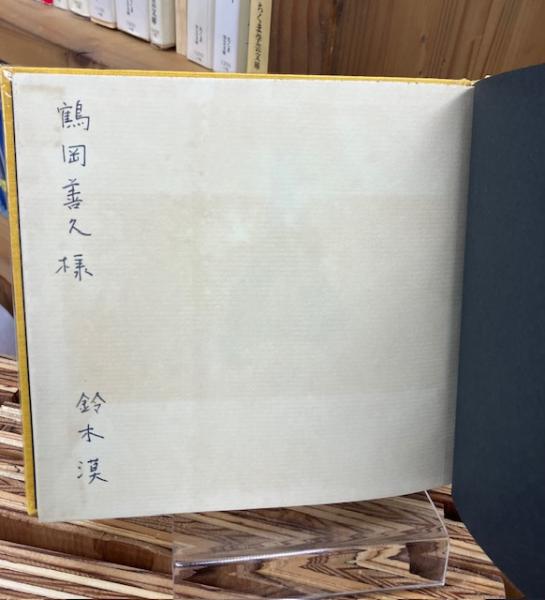 ちくま学芸文庫
鶴岡善久様
鈴木漠